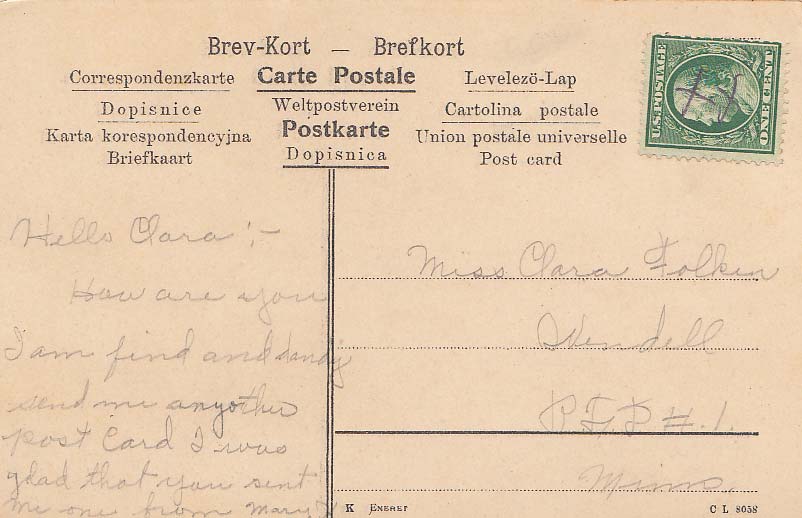 Brev-Kort — Brefkort
Correspondenzkarte Carte Postale Levelezö-Lap
Dopisnice Weltpostverein Cartolina postale
Karta korespondencyjna Postkarte Union postale universelle
Briefkaart Dopisnica Post card
U.S. POSTAGE
ONE CENT
Hello Clara :-
How are you
I am find and dandy
send me anyother
post Card I was
glad that you sent
me one from Mary
Miss Clara Folken
Wendell
R F D #. 1.
Minn.
K ENERET
C L 8058